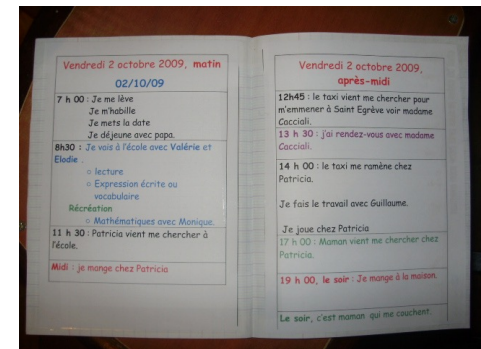 Vendredi 2 octobre 2009, matin
02/10/09
7 h 00 : Je me lève
Je m'habille
Je mets la date
Je déjeune avec papa.
8h30 : Je vais à l'école avec Valérie et
Elodie .
o lecture
o Expression écrite ou
vocabulaire
Récréation
o Mathématiques avec Monique.
11 h 30 : Patricia vient me chercher à
l'école.
Midi : je mange chez Patricia
Vendredi 2 octobre 2009,
après-midi
12h45 : le taxi vient me chercher pour
m'emmener à Saint Egrève voir madame
Cacciali.
13 h 30 : j'ai rendez-vous avec madame
Cacciali.
14 h 00 : le taxi me ramène chez
Patricia.
Je fais le travail avec Guillaume.
Je joue chez Patricia
17 h 00 : Maman vient me chercher chez
Patricia.
19 h 00, le soir : Je mange à la maison.
Le soir, c'est maman qui me couchent.